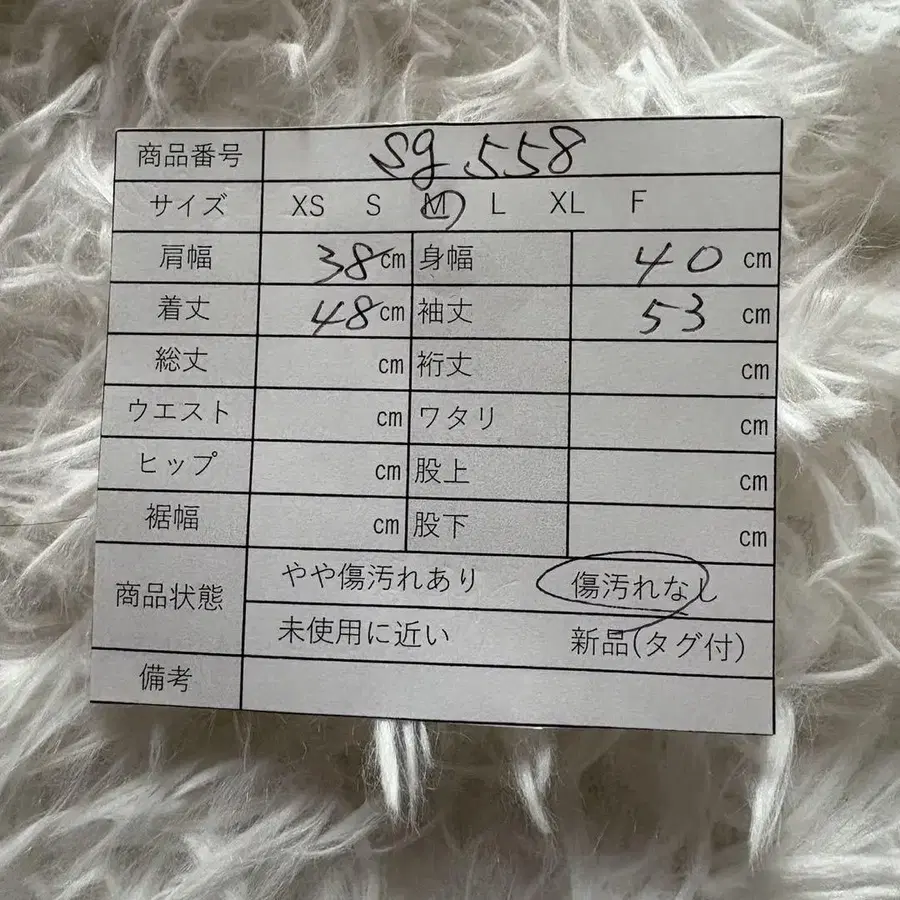 商品番号 sg 558
サイズ XS S M L XL F
肩幅 38 cm 身幅 40 cm
着丈 48 cm 袖丈 53 cm
総丈 cm 裄丈 cm
ウエスト cm ワタリ cm
ヒップ cm 股上 cm
裾幅 cm 股下 cm
商品状態 やや傷汚れあり 傷汚れなし
未使用に近い 新品(タグ付)
備考